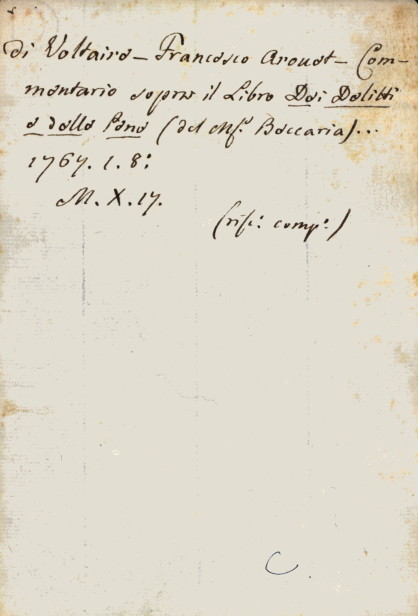 di Voltaire – Francesco Arouet – Com–
mentario sopra il Libro Dei Delitti
e delle Pene (del Mse. Beccaria)...
1767. 1. 8:
M. X. 17.
(risc: comp:)
C.